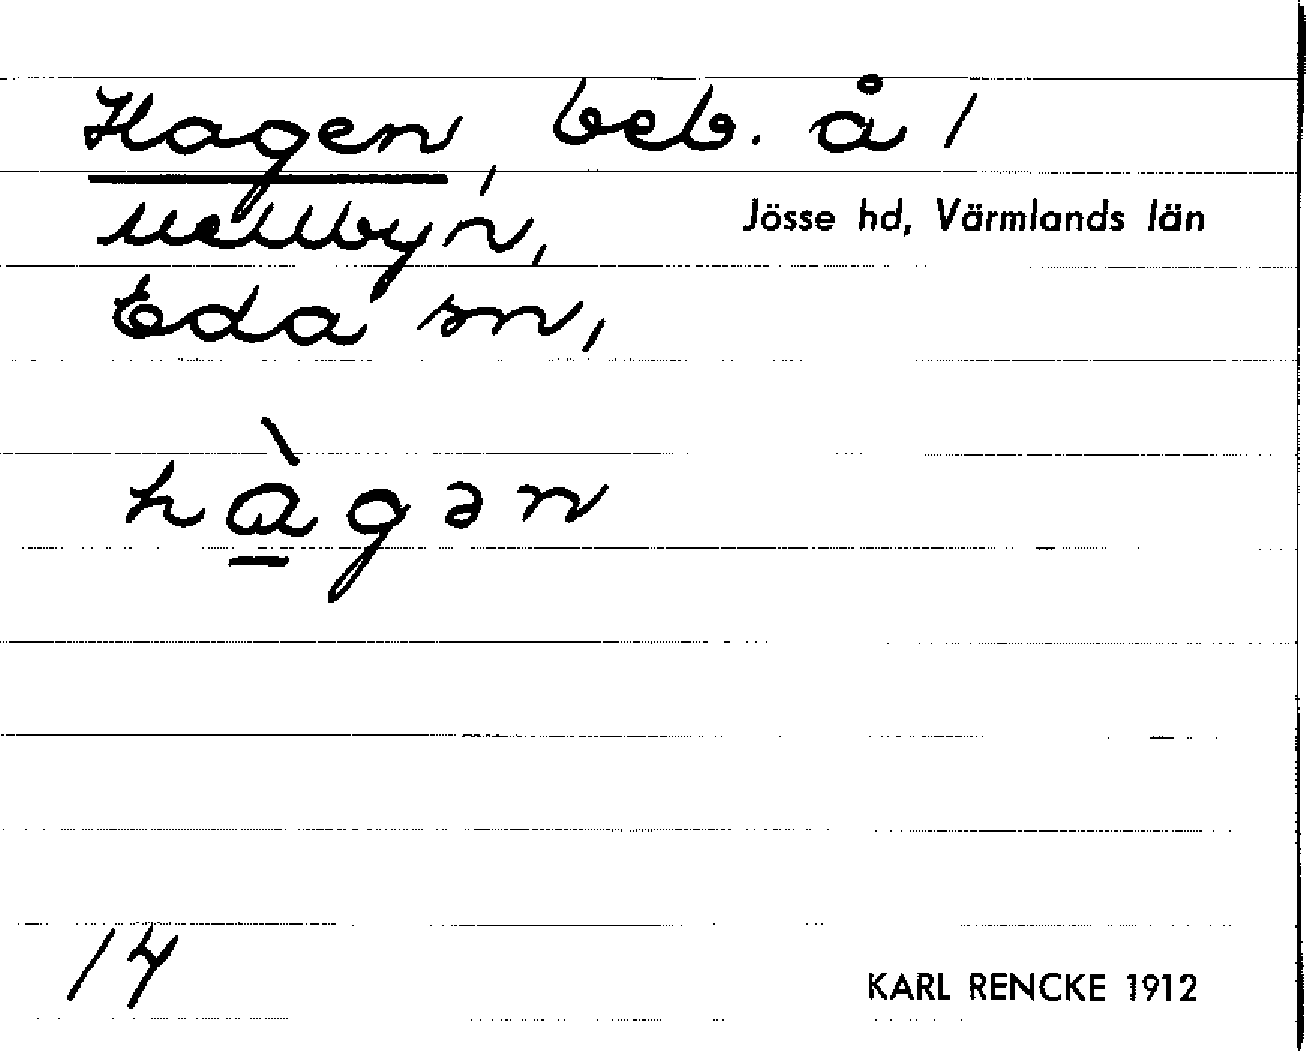 Hagen, beb. å 1
Mellbyn, Jösse hd, Värmlands län
Eda sn,
hàgən
14 KARL RENCKE 1912